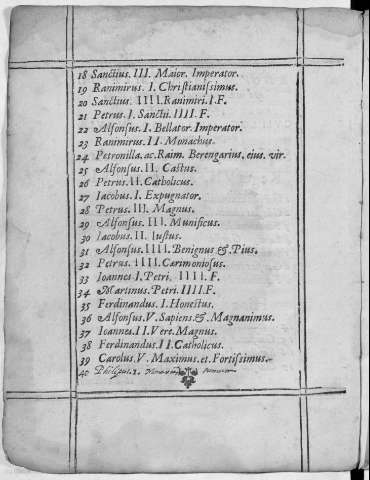 18 Sanctius. III. Maior. Imperator.
19 Ranimirus. I. Christianissimus.
20 Sanctius. IIII. Ranimiri. I. F.
21 Petrus. I. Sanctii. IIII. F.
22 Alfonsus. I. Bellator. Imperator.
23 Ranimirus. II. Monachus.
24 Petronilla. ac. Raim. Berengarius. eius. vir.
25 Alfonsus. II. Castus.
26 Petrus. II. Catholicus.
27 Iacobus. I. Expugnator.
28 Petrus. III. Magnus.
29 Alfonsus. III. Munificus.
30 Iacobus. II. Iustus.
31 Alfonsus. IIII. Benignus &. Pius.
32 Petrus. IIII. Carimoniosus.
33 Ioannes. I. Petri. IIII. F.
34 Martinus. Petri. IIII. F.
35 Ferdinandus. I. Honestus.
36 Alfonsus. V. Sapiens. &. Magnanimus.
37 Ioannes. II. Vere. Magnus.
38 Ferdinandus. II. Catholicus.
39 Carolus. V. Maximus. et. Fortissimus.
40 Philipus. I.